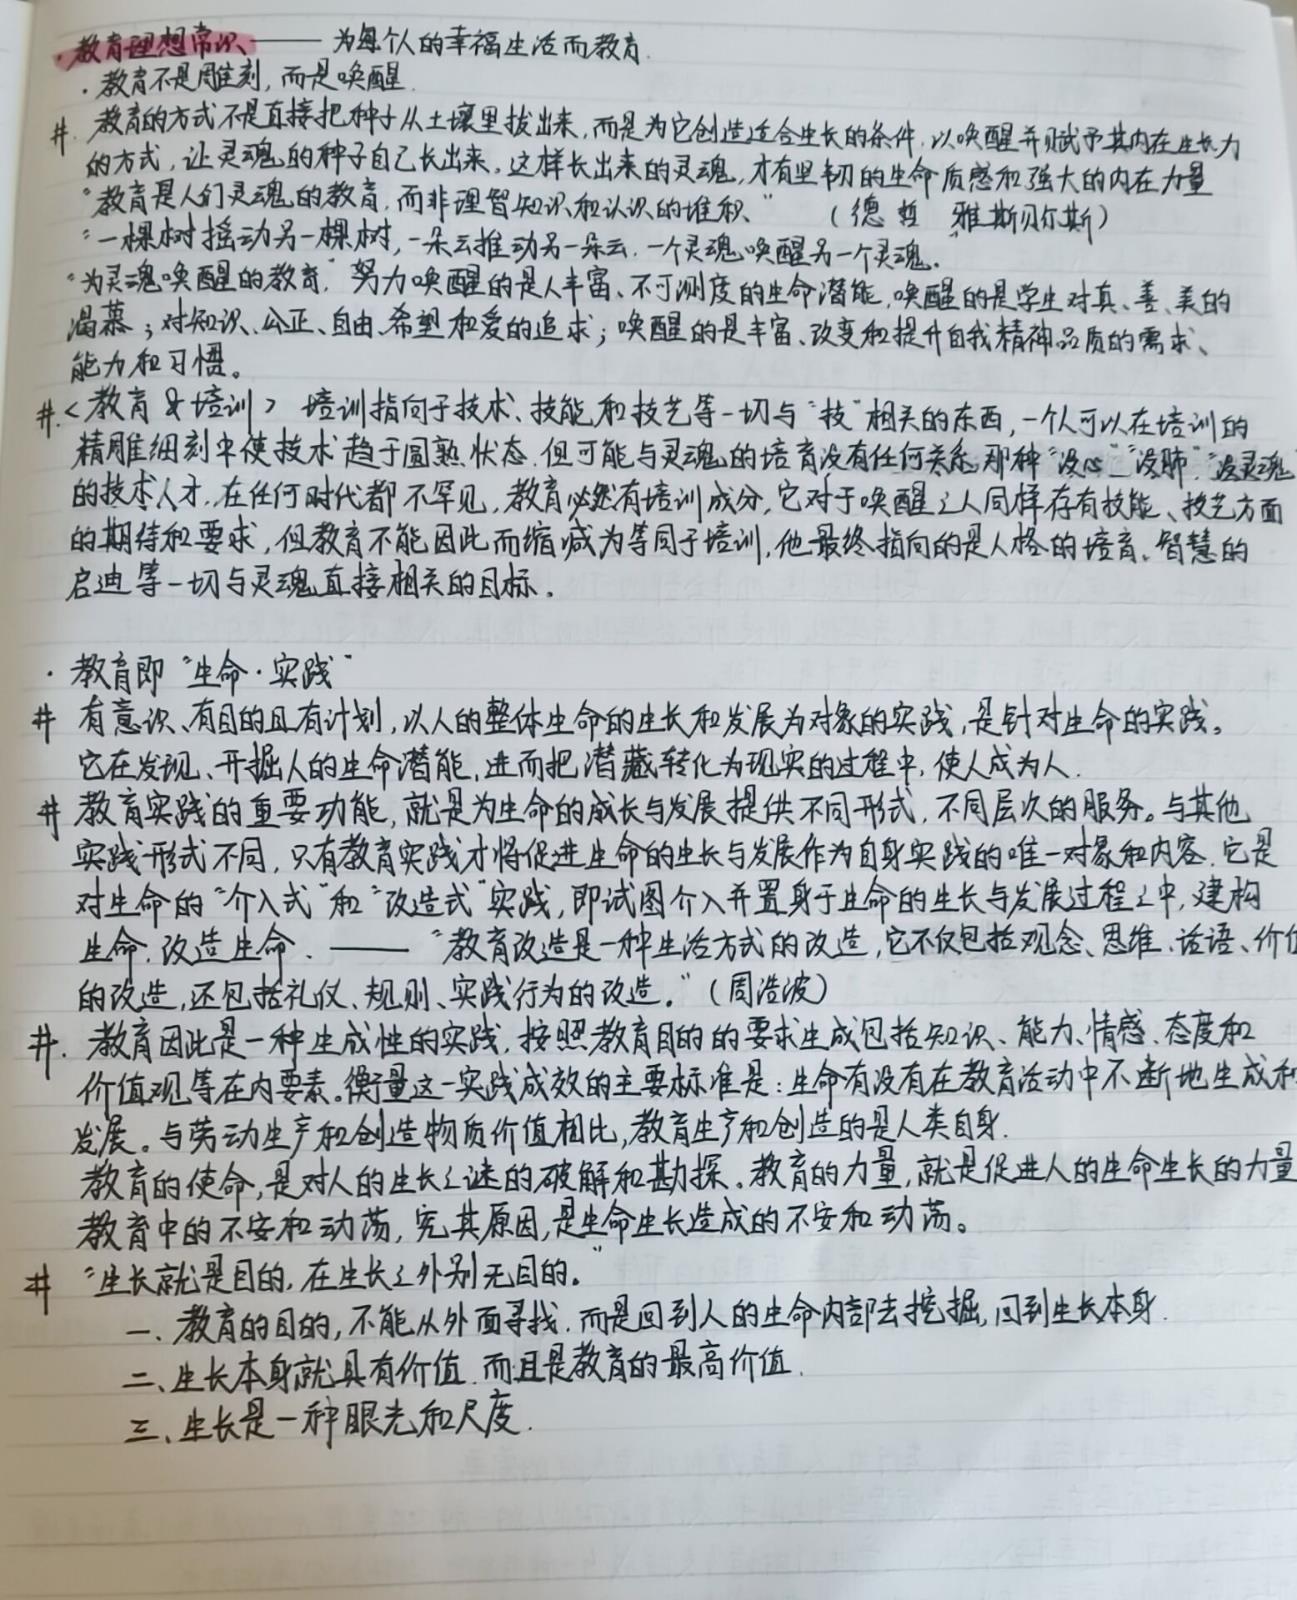 · 教育理想常识 —— 为每个人的幸福生活而教育.
· 教育不是雕刻，而是唤醒.
#. 教育的方式不是直接把种子从土壤里拔出来，而是为它创造适合生长的条件，以唤醒并赋予其内在生长力
的方式，让灵魂的种子自己长出来，这样长出来的灵魂，才有坚韧的生命质感和强大的内在力量
“教育是人们灵魂的教育，而非理智知识和认识的堆积、”（德 哲 雅斯贝尔斯）
“一棵树摇动另一棵树，一朵云推动另一朵云，一个灵魂唤醒另一个灵魂.”
“为灵魂唤醒的教育”努力唤醒的是人丰富、不可测度的生命潜能，唤醒的是学生对真、善、美的
渴慕；对知识、公正、自由、希望和爱的追求；唤醒的是丰富、改变和提升自我精神品质的需求、
能力和习惯。
#.〈教育 & 培训〉 培训指向于技术、技能和技艺等一切与“技”相关的东西，一个人可以在培训的
精雕细刻中使技术趋于圆熟状态，但可能与灵魂的培育没有任何关系，那种“没心”“没肺”“没灵魂
的技术人才，在任何时代都不罕见，教育必然有培训成分，它对于唤醒之人同样存有技能、技艺方面
的期待和要求，但教育不能因此而缩减为等同于培训，他最终指向的是人格的培育、智慧的
启迪等一切与灵魂直接相关的目标。
· 教育即“生命·实践”
# 有意识、有目的且有计划，以人的整体生命的生长和发展为对象的实践，是针对生命的实践。
它在发现、开掘人的生命潜能，进而把潜藏转化为现实的过程中，使人成为人.
# 教育实践的重要功能，就是为生命的成长与发展提供不同形式，不同层次的服务。与其他
实践形式不同，只有教育实践才将促进生命的生长与发展作为自身实践的唯一对象和内容，它是
对生命的“介入式”和“改造式”实践，即试图介入并置身于生命的生长与发展过程之中，建构
生命，改造生命. —— “教育改造是一种生活方式的改造，它不仅包括观念、思维、话语、价值
的改造，还包括礼仪、规则、实践行为的改造。”（周浩波）
#. 教育因此是一种生成性的实践，按照教育目的的要求生成包括知识、能力、情感、态度和
价值观等在内要素。衡量这一实践成效的主要标准是：生命有没有在教育活动中不断地生成和
发展。与劳动生产和创造物质价值相比，教育生产和创造的是人类自身.
教育的使命，是对人的生长之谜的破解和勘探。教育的力量，就是促进人的生命生长的力量
教育中的不安和动荡，究其原因，是生命生长造成的不安和动荡。
# “生长就是目的，在生长之外别无目的。”
一、教育的目的，不能从外面寻找，而是回到人的生命内部去挖掘，回到生长本身.
二、生长本身就具有价值，而且是教育的最高价值.
三、生长是一种眼光和尺度.